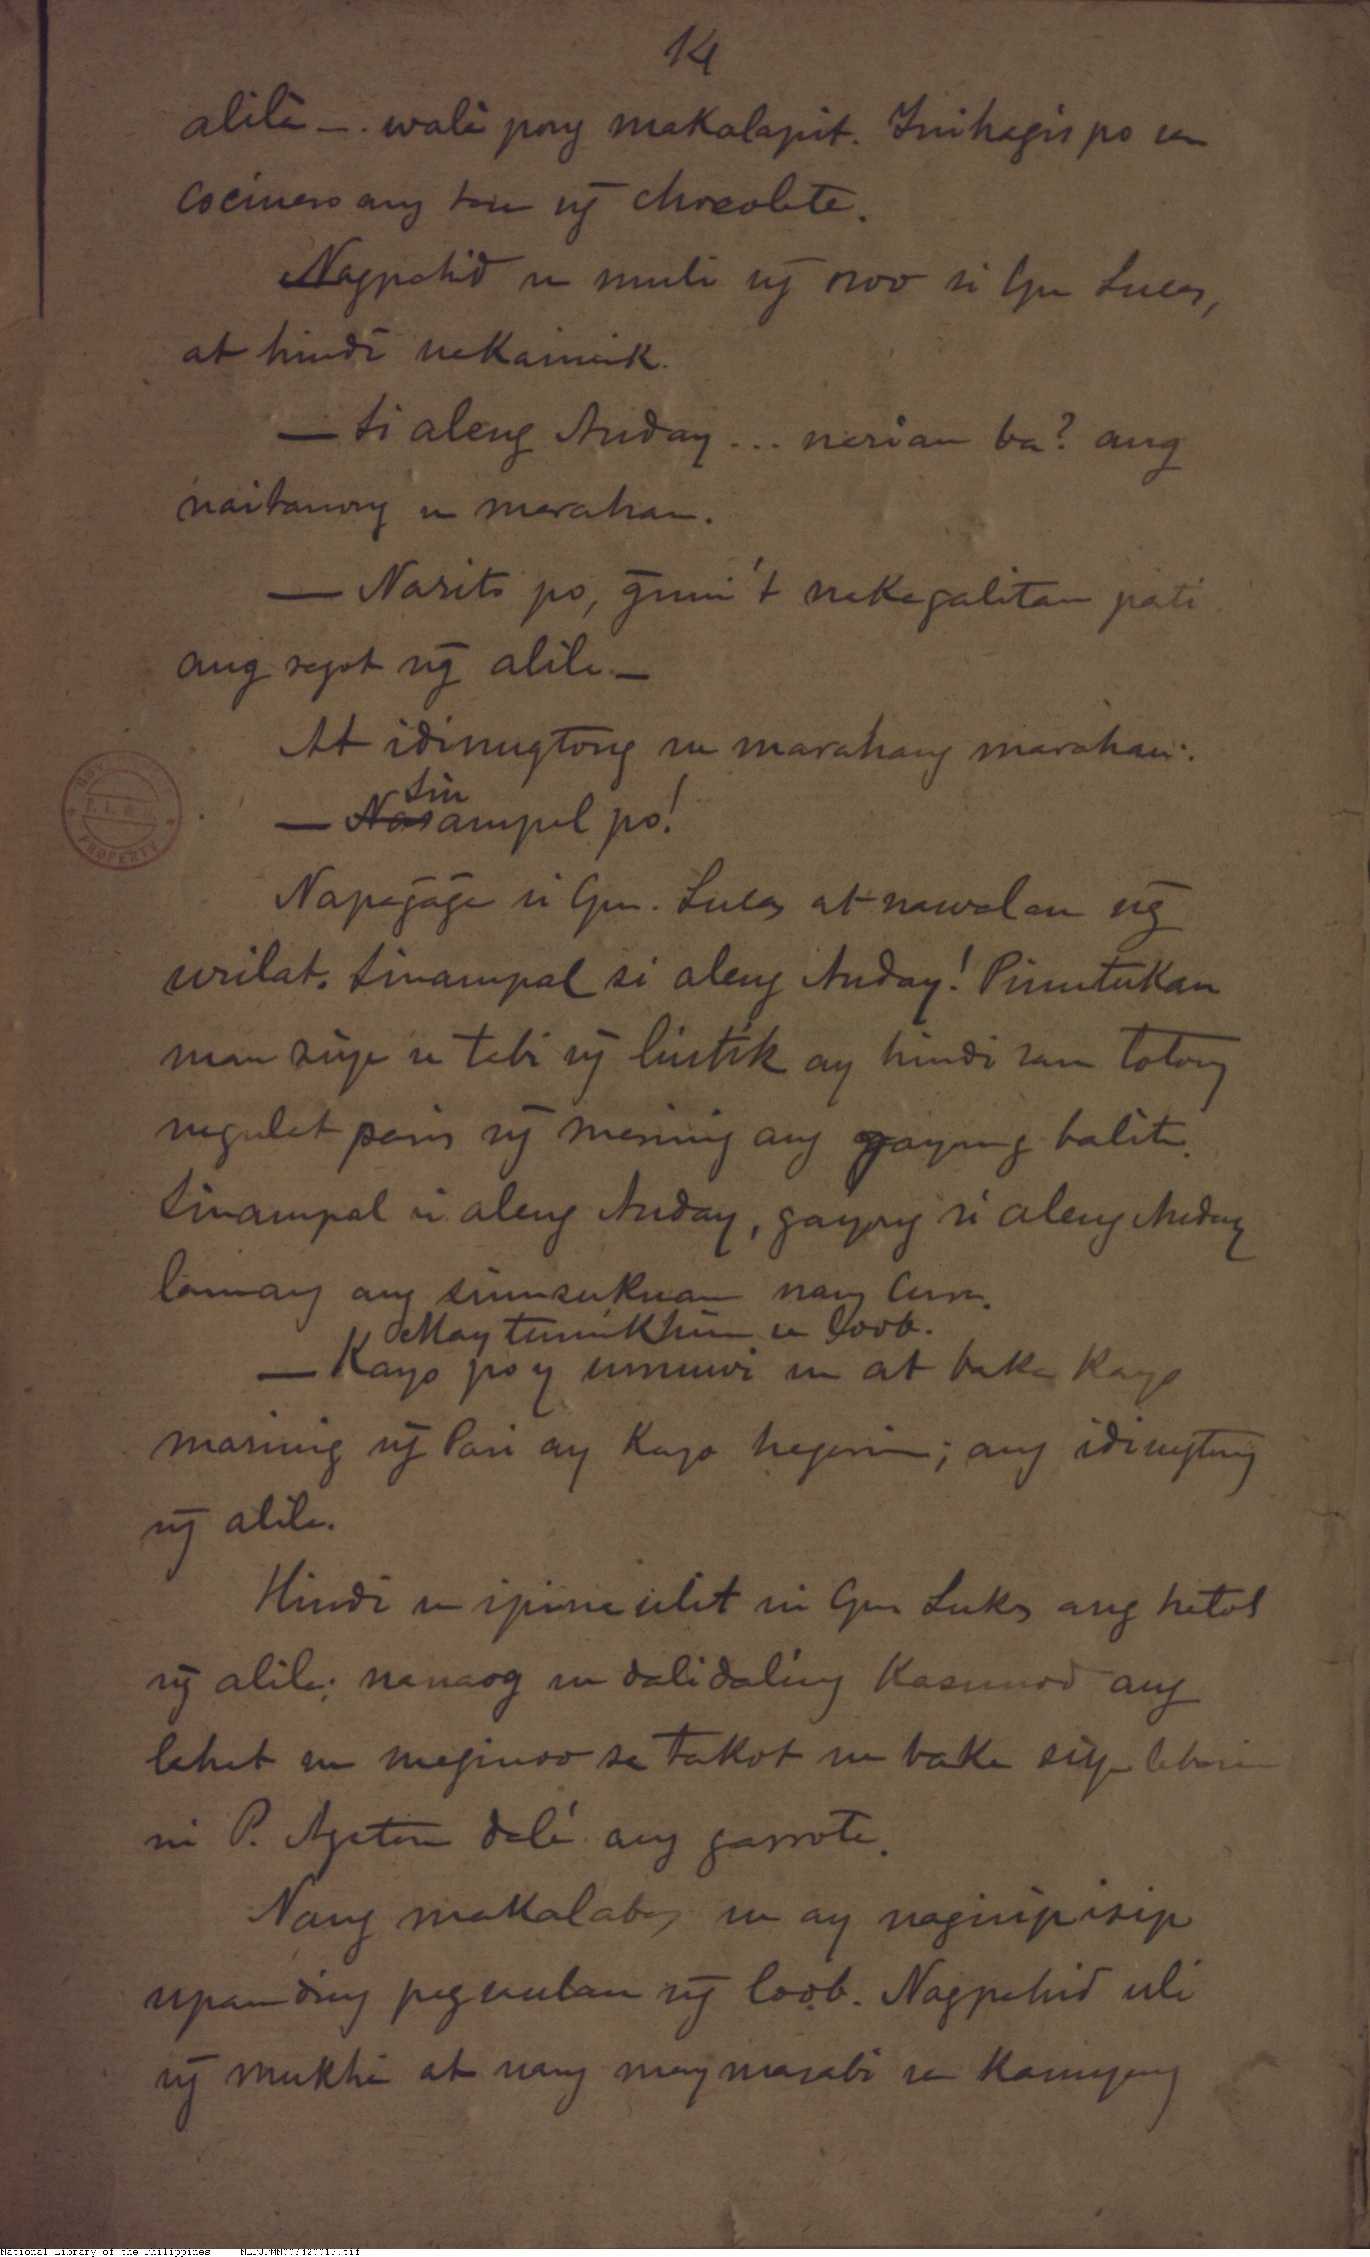 14
alilà —. walâ pong makalapit. Inihagis po sa
cocinero ang tasa n͠g chocolate.
Nagpahid na muli n͠g noo si Gn Lucas,
at hindî nakaimik.
— Si aleng Anday ... narian ba? ang
naitanong na marahan.
— Narito po, g͠uni't nakagalitan pati
ang sagot n͠g alila —
At idinugtong na marahang marahan:
— Sinampal po!
Napag͠ag͠a si Gn. Lucas at nawalan n͠g
wilat. Sinampal si aleng Anday! Pinutukan
man siya sa tabi n͠g lintík ay hindi sana totong
nagulat paris n͠g marinig ang gayong balita.
Sinampal si aleng Anday, gayong si aleng Anday
lamang ang sinusukuan nang Cura.
May tumikhim sa loob.
— Kayo po'y umuwi na at baka kayo
marinig n͠g Pari ay kayo hagarin; ang idinugtong
n͠g alila.
Hindî na ipinaulit ni Gn Lukas ang hatol
n͠g alila; nanaog na dalidaling kasunod ang
lahat na maginoo sa takot na baka siya labasin
ni P. Agaton dalá ang garrote.
Nang makalabas na ay nagisipisip
upanding pagsaulan n͠g loob. Nagpahid uli
n͠g mukha at nang may masabi sa kaniyang
BOY PROPERTY
National Library of the Philippines